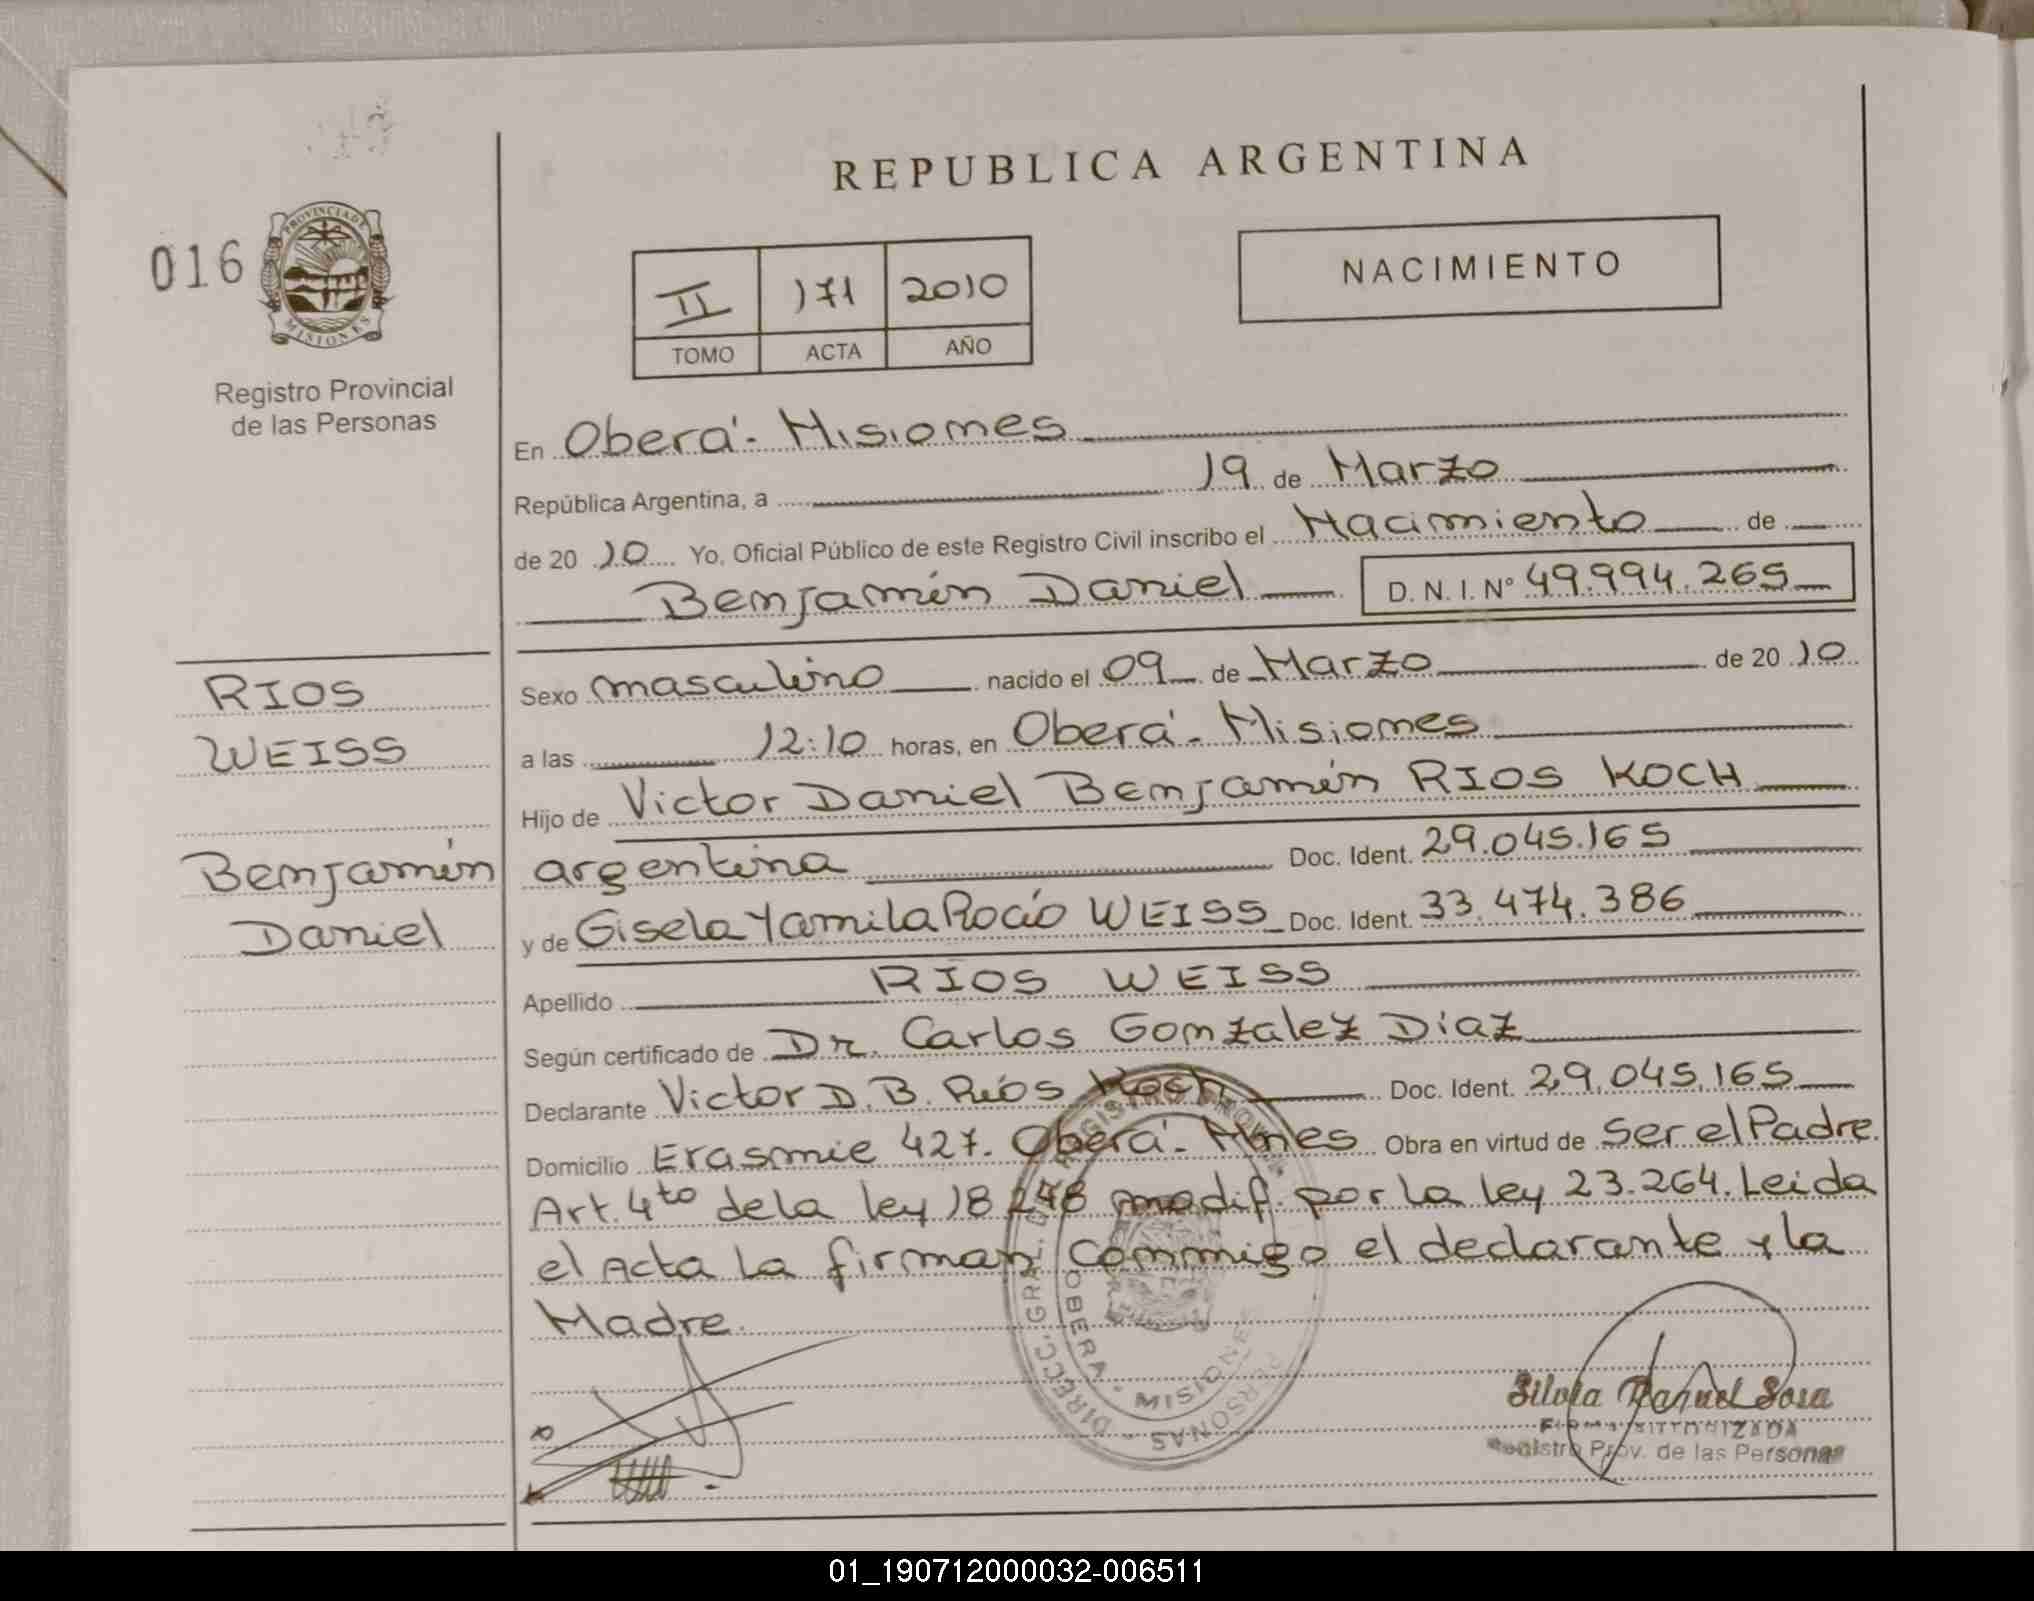 REPUBLICA ARGENTINA
016
PROVINCIA DE
MISIONES
Registro Provincial
de las Personas
NACIMIENTO
II 171 2010
TOMO ACTA AÑO
En Oberá - Misiones
República Argentina, a 19 de Marzo
de 20 10 Yo, Oficial Público de este Registro Civil inscribo el Nacimiento de
Benjamín Daniel D. N. I. Nº 49.994.265
Sexo masculino nacido el 09 de Marzo de 20 10
a las 12:10 horas, en Oberá - Misiones
Hijo de Victor Daniel Benjamín RIOS KOCH
argentina Doc. Ident. 29.045.165
y de Gisela Yamila Rocío WEISS Doc. Ident. 33.474.386
Apellido RIOS WEISS
Según certificado de Dr. Carlos Gonzalez Diaz
Declarante Victor D. B. Ríos Koch Doc. Ident. 29.045.165
Domicilio Erasmie 427. Oberá - Mnes Obra en virtud de Ser el Padre.
Art. 4to de la ley 18248 modif. por la ley 23.264. Leida
el Acta la firman conmigo el declarante y la
Madre.
RIOS
WEISS
Benjamín
Daniel
DIRECC. GRAL. D REGISTRO PROV. PERSONAS
OBERA - MISIONES
Silvia Raquel Sosa
FIRMA AUTORIZADA
Registro Prov. de las Personas
01_190712000032-006511